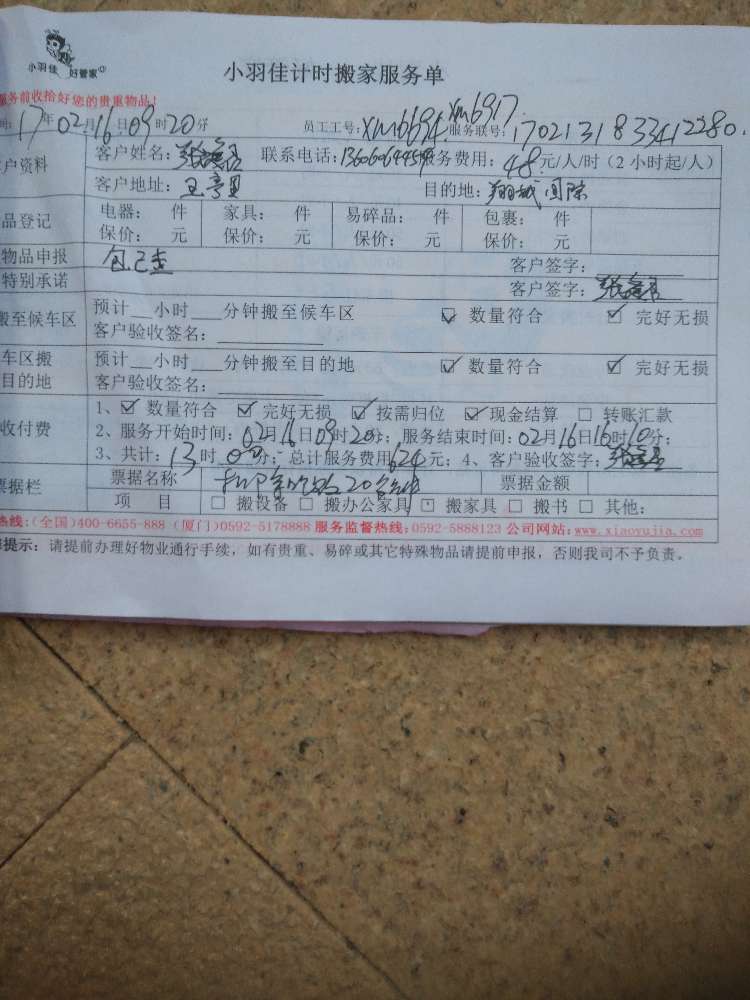 小羽佳 好管家
小羽佳计时搬家服务单
服务前收拾好您的贵重物品!
17年02月16日09时20分 员工工号: xm6694 xm6917 服务联号: 1702131833412280
户资料 客户姓名: 联系电话: 服务费用: 48元/人/时(2小时起/人)
客户地址: 目的地: 翔城国际
品登记 电器: 件 家具: 件 易碎品: 件 包裹: 件
保价: 元 保价: 元 保价: 元 保价: 元
物品申报 客户签字:
特别承诺 客户签字:
搬至候车区 预计__小时___分钟搬至候车区 ☑ 数量符合 ☑ 完好无损
客户验收签名:
车区搬 预计__小时___分钟搬至目的地 ☑ 数量符合 ☑ 完好无损
目的地 客户验收签名:
收付费 1、☑ 数量符合 ☑ 完好无损 ☑ 按需归位 ☑ 现金结算 □ 转账汇款
2、服务开始时间: 02月16日09时20分; 服务结束时间: 02月16日16时10分;
3、共计: 13时 分; 总计服务费用624元; 4、客户验收签字:
票据栏 票据名称 票据金额
项 目 □ 搬设备 □ 搬办公家具 □ 搬家具 □ 搬书 □ 其他:
热线:(全国)400-6655-888 (厦门)0592-5178888 服务监督热线:0592-5888123 公司网站:www.xiaoyujia.com
提示: 请提前办理好物业通行手续, 如有贵重、易碎或其它特殊物品请提前申报, 否则我司不予负责。